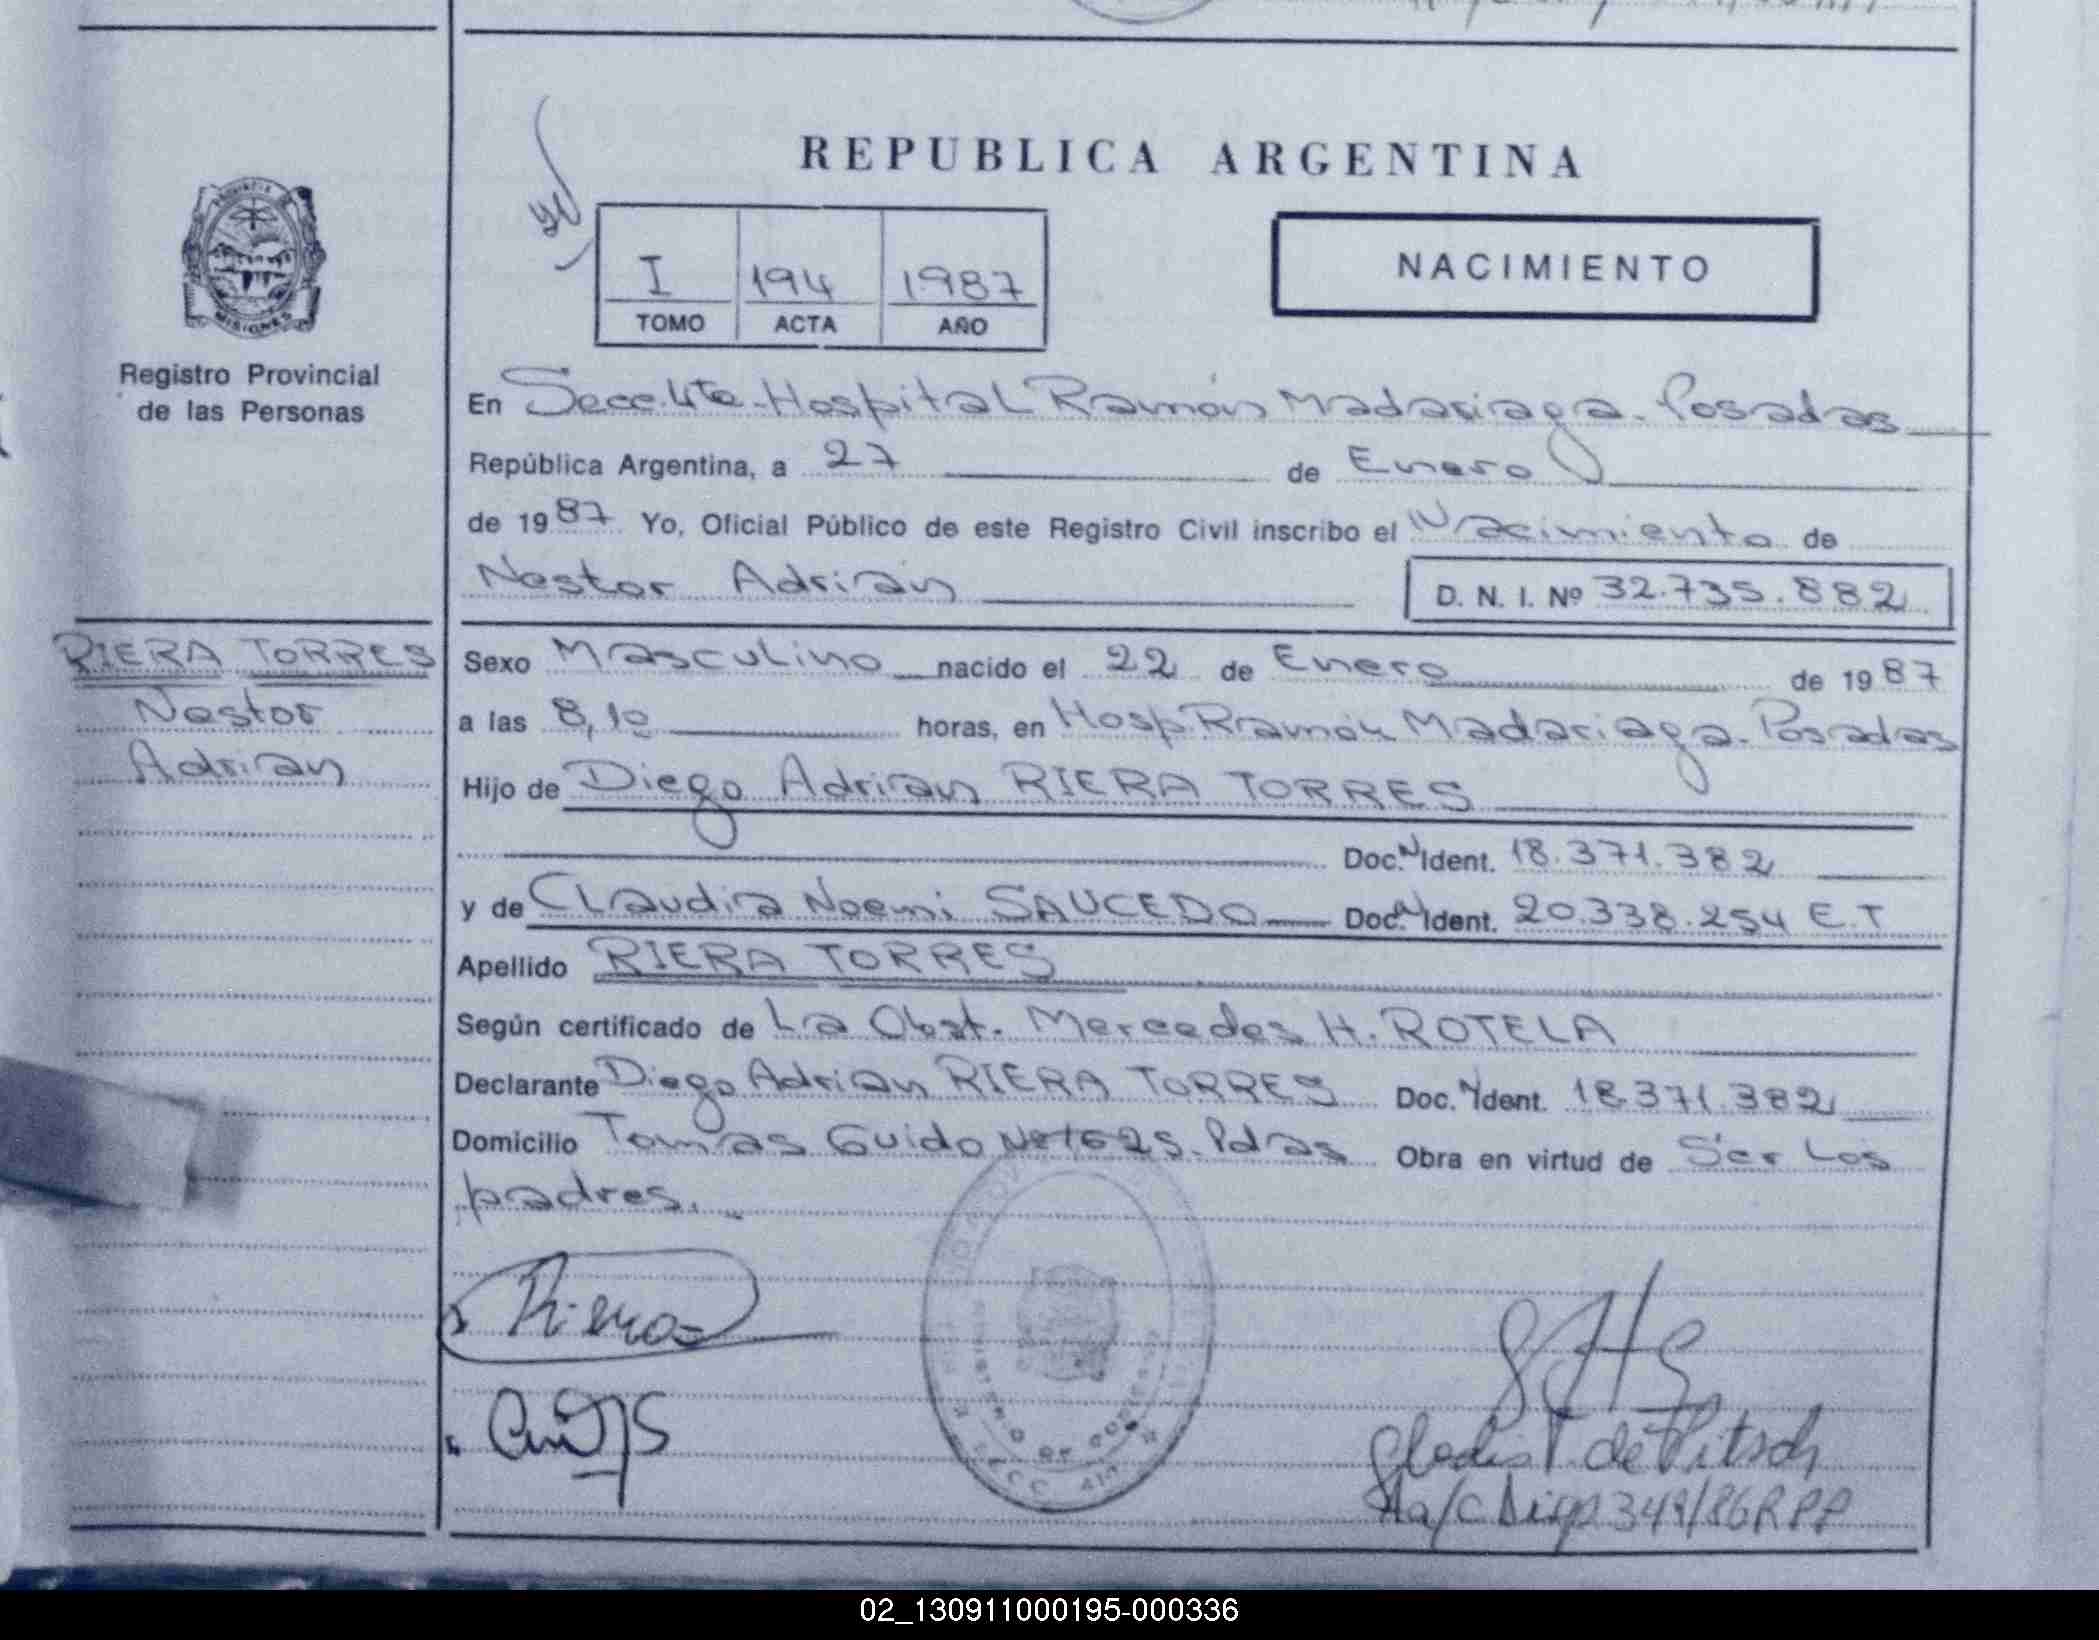 REPUBLICA ARGENTINA
NACIMIENTO
I 194 1987
TOMO ACTA AÑO
PROVINCIA
MISIONES
Registro Provincial
de las Personas
En Secc. 4ta. Hospital Ramón Madariaga. Posadas
República Argentina, a 27 de Enero
de 1987 Yo, Oficial Público de este Registro Civil inscribo el Nacimiento de
Nestor Adrian D. N. I. Nº 32.735.882
RIERA TORRES
Nestor
Adrian
Sexo Masculino nacido el 22 de Enero de 1987
a las 8,10 horas, en Hosp Ramón Madariaga. Posadas
Hijo de Diego Adrian RIERA TORRES
Doc. N Ident. 18.371.382
y de Claudia Noemi SAUCEDO Doc. N Ident. 20.338.254 E.T
Apellido RIERA TORRES
Según certificado de La Obst. Mercedes H. ROTELA
Declarante Diego Adrian RIERA TORRES Doc. N Ident. 18.371.382
Domicilio Tomas Guido Nº 1625. Pdas Obra en virtud de Ser Los
padres.
Riera
MINISTERIO DE GOBIERNO
Gladis T. de Pitsch
a/c Disp 349/86 R P P
02_130911000195-000336